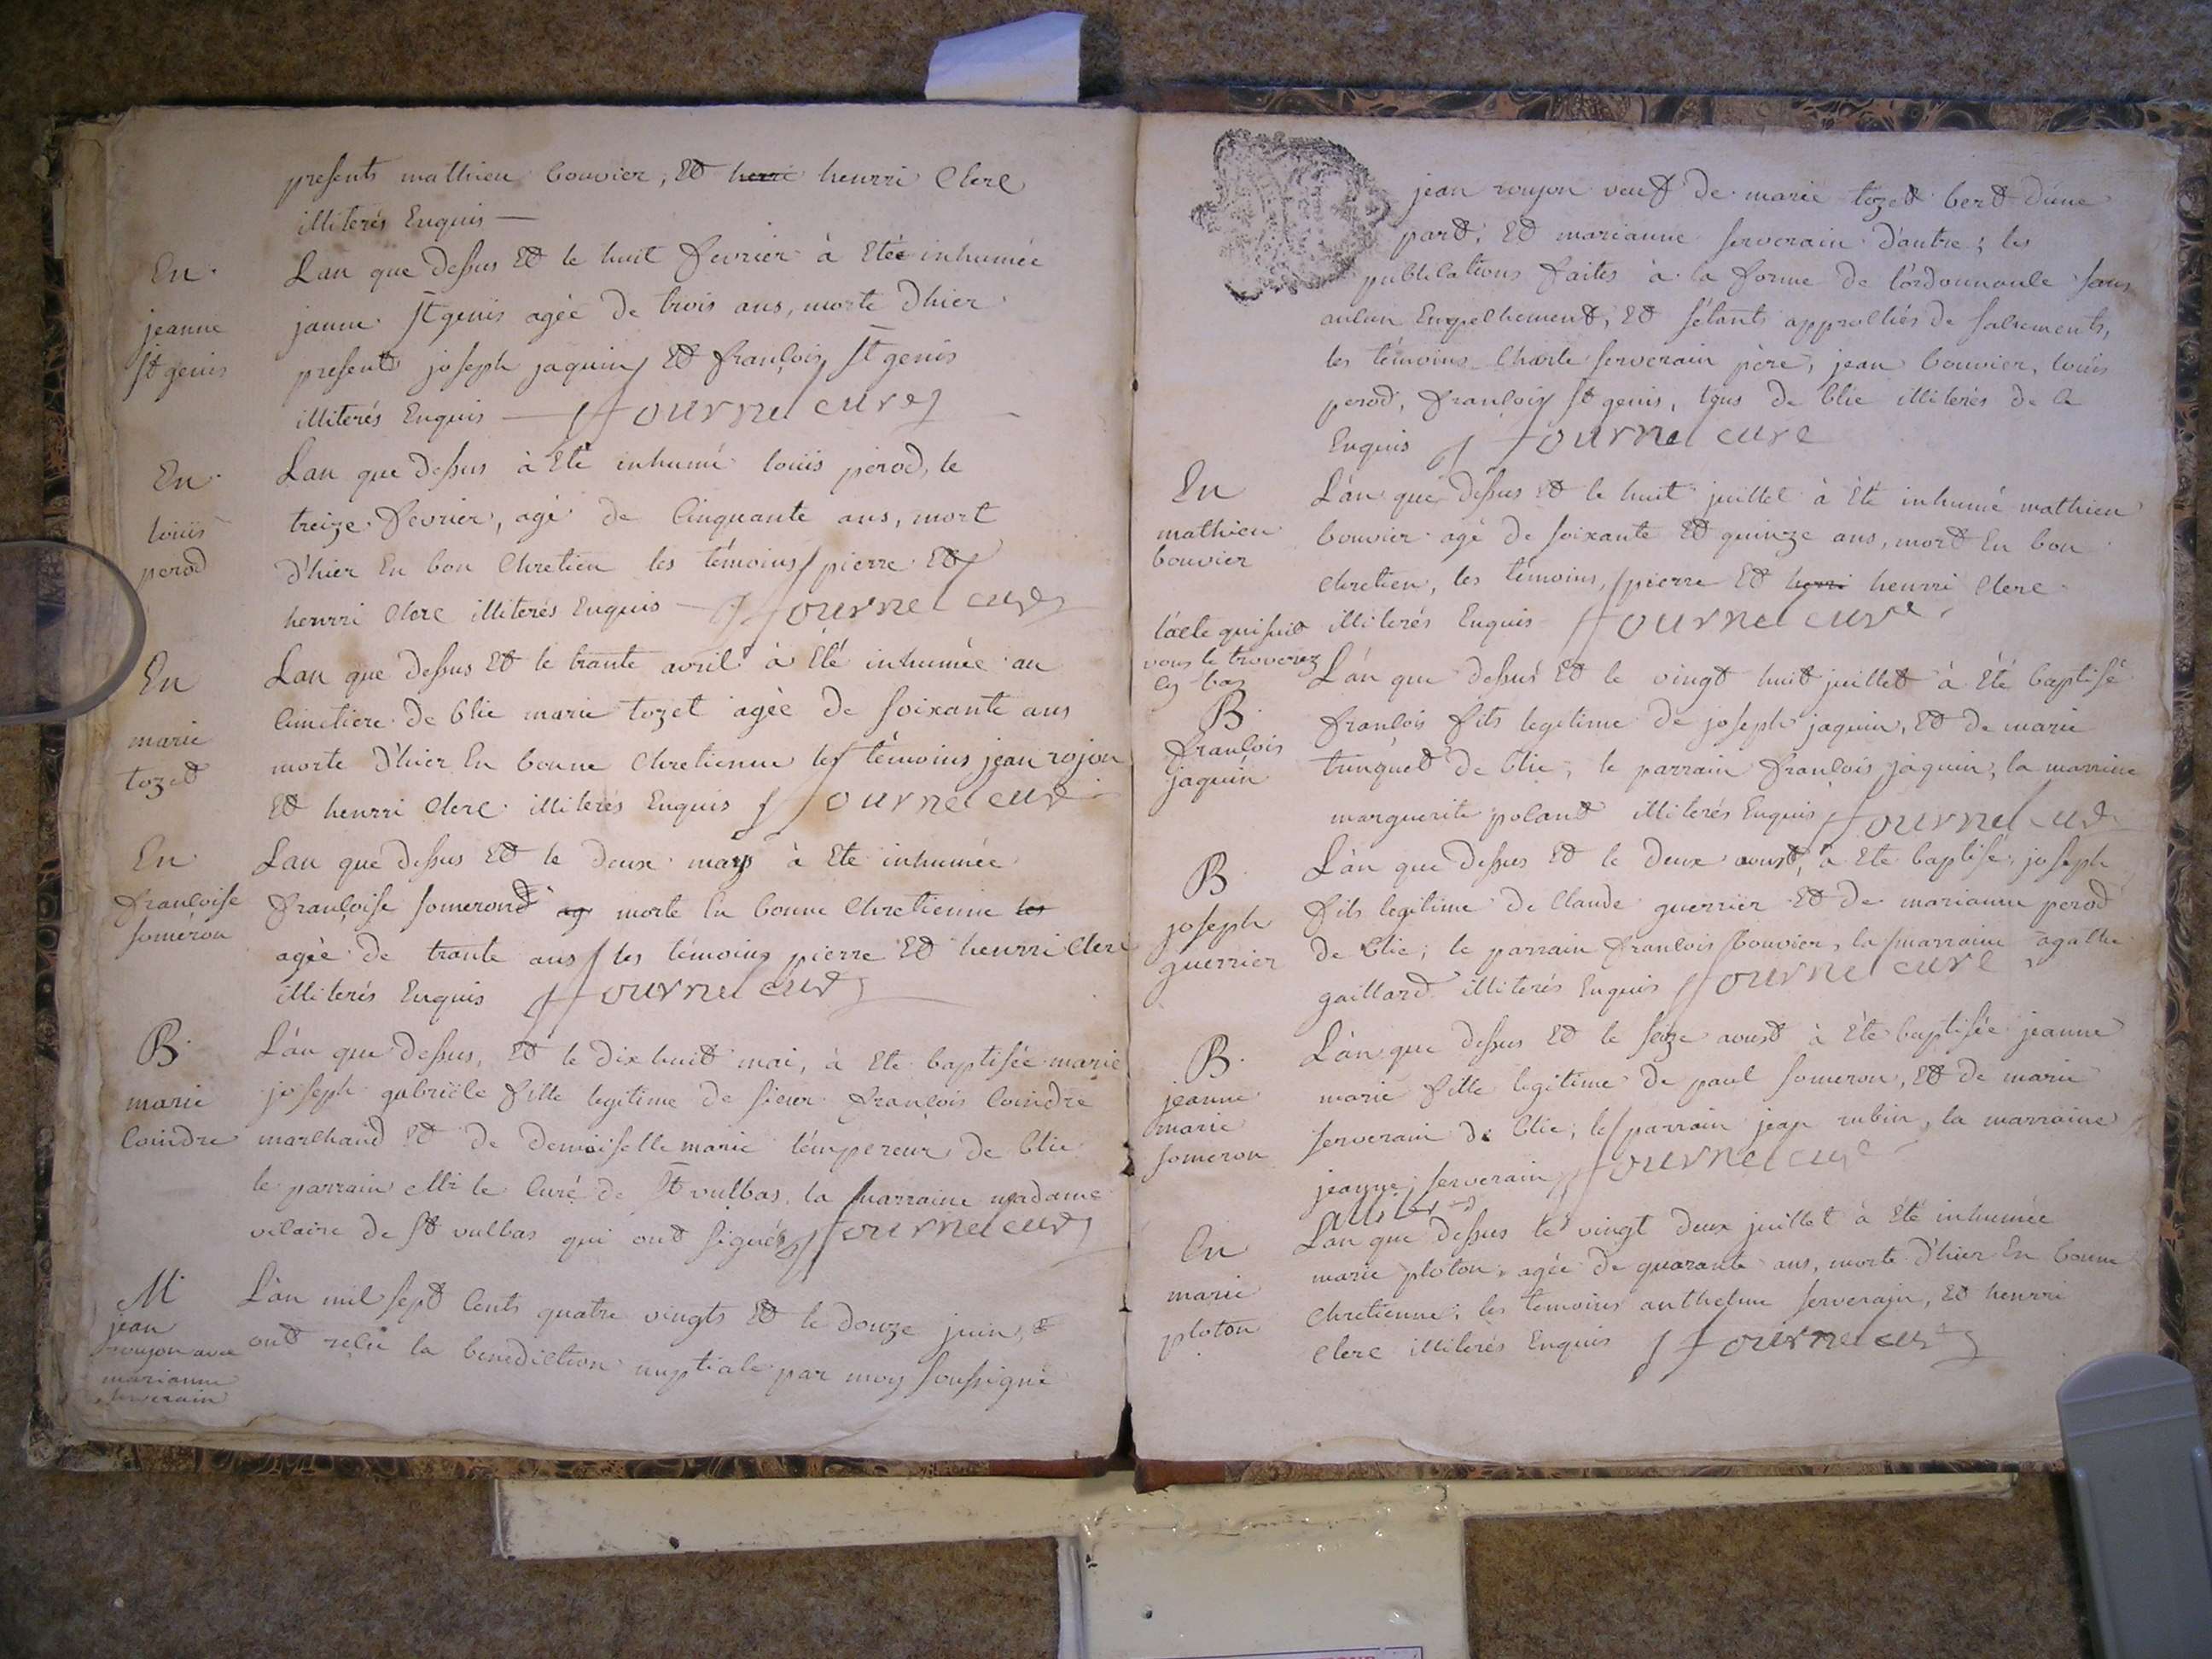 presents mathieu bouvier, Et herri henrri Clerc
illiterés Enquis —
En
jeanne
St genis
Lan que dessus Et le huit fevrier à Etée inhumée
janne St genis agée de trois ans, morte d'hier
presents joseph jaquin Et françois St genis
illiterés Enquis — fournel curé
En
louis
perod
Lan que dessus à Eté inhumé louis perod, le
treize fevrier, agé de Cinquante ans, mort
d'hier En bon Chretien les témoins pierre Et
henrri Clerc illiterés Enquis — fournel curé
En
marie
tozet
Lan que dessus Et le trante avril à Eté inhumée au
Cimetiere de blie marie tozet agée de soixante ans
morte d'hier En bonne Chretienne les témoins jean rojon
Et henrri Clerc illiterés Enquis fournel curé
En
françoise
someron
Lan que dessus Et le deux mays à Eté inhumée
françoise somerond ag morte En bonne Chretienne les
agée de trante ans les témoins pierre Et henrri Clerc
illiterés Enquis fournel curé
B
marie
Coindre
L'an que dessus, Et le dix huit mai, à Eté baptisée marie
joseph gabriële fille legitime de sieur françois Coindre
marchand Et de demoiselle marie l'émpereur de blie
le parrain Mr le Curé de St vulbas la marraine madame
vilaine de St vulbas qui ont signés fournel curé
M
jean
roujon avec
marianne
serverain
L'an mil sept Cents quatre vingts Et le douze juin,
ont reçu la benediction nuptiale par moy soussigné
jean roujon veuf de marie tozet bert d'une
part; Et marianne serverain d'autre; les
publications faites à la forme de l'ordonnance sans
aucun Empechement, Et s'étants approchés de sacrements,
les témoins Charle serverain père, jean bouvier, louis
perod, françois St genis, tous de blie illiterés de ce
Enquis fournel curé
En
mathieu
bouvier
L'an que dessus Et le huit juillet à Eté inhumé mathieu
bouvier agé de soixante Et quinze ans, mort En bon
chretien, les témoins, pierre Et herri henrri Clerc
illiterés Enquis fournel curé
l'acte qui suit
vous le trouverez
en bas
B
françois
jaquin
L'an que dessus Et le vingt huit juillet à Eté baptisé
françois fils legitime de joseph jaquin, Et de marie
trinquet de blie, le parrain françois jaquin, la marrine
marguerite polant illiterés Enquis fournel curé
B
joseph
guerrier
L'an que dessus Et le deux aoust, à Eté baptisé joseph
fils legitime de Claude guerrier Et de marianne perod
de blie; le parrain françois bouvier, la marraine agathe
gaillard illiterés Enquis fournel curé
B
jeanne
marie
someron
L'an que dessus Et le seize aoust à Eté baptisée jeanne
marie fille legitime de paul someron, Et de marie
serverain de blie; le parrain jean rubin, la marraine
jeanne serverain fournel curé
En
marie
ploton
L'an que dessus le vingt deux juillet à Eté inhumée
marie ploton, agée de quarante ans, morte d'hier En bonne
chretienne; les témoins anthelme serverain, Et henrri
Clerc illiterés Enquis fournel curé